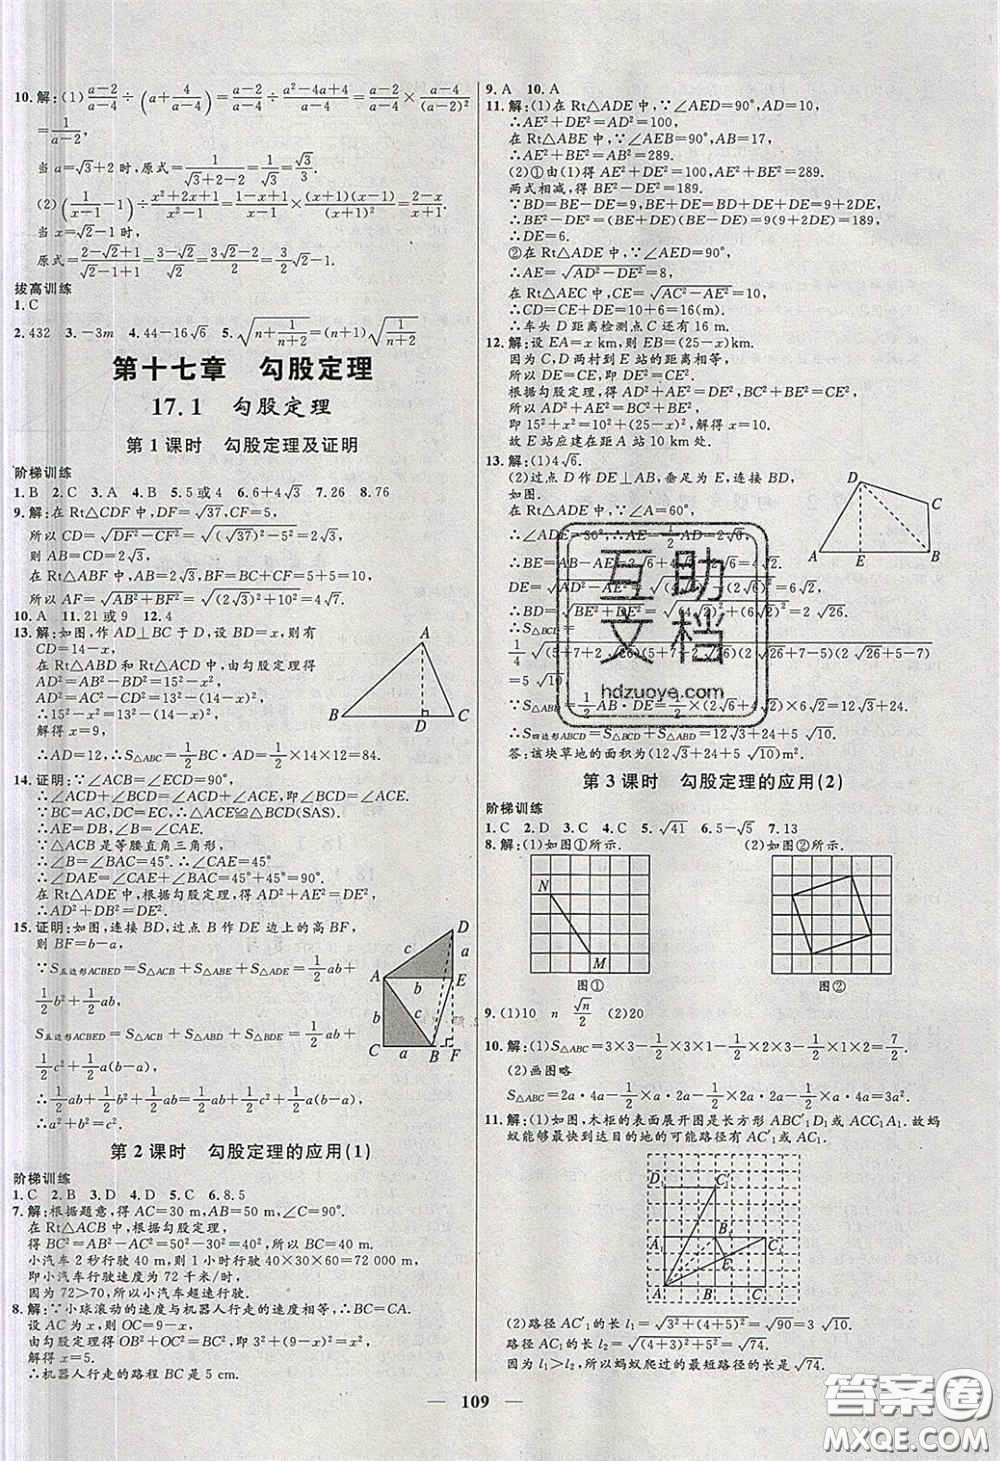 10.解:(1)\frac{a-2}{a-4}÷(a+\frac{4}{a-4})=\frac{a-2}{a-4}÷\frac{a²-4a+4}{a-4}=\frac{a-2}{a-4}×\frac{a-4}{(a-2)²}
=\frac{1}{a-2},
当 a=√3+2时,原式=\frac{1}{√3+2-2}=\frac{1}{√3}=\frac{√3}{3}.
(2)(\frac{1}{x-1}-1)÷\frac{x²+2x+1}{x²-1}=\frac{2-x}{x-1}×\frac{(x+1)(x-1)}{(x+1)²}=\frac{2-x}{x+1}.
当 x=√2-1时,
原式=\frac{2-√2+1}{√2-1+1}=\frac{3-√2}{√2}=\frac{3√2-2}{2}.
拔高训练
1.C
2.432 3.-3m 4.44-16√6 5.√(n+\frac{1}{n+2})=(n+1)√(\frac{1}{n+2})
第十七章 勾股定理
17.1 勾股定理
第1课时 勾股定理及证明
阶梯训练
1.B 2.C 3.A 4.B 5.5或4 6.6+4√3 7.26 8.76
9.解:在Rt△CDF中,DF=√37,CF=5,
所以CD=√(DF²-CF²)=√((√37)²-5²)=2√3,
则AB=CD=2√3,
在Rt△ABF中,AB=2√3,BF=5+5=10,
所以AF=√(AB²+BF²)=√((2√3)²+10²)=4√7.
10.A 11.21或9 12.4
13.解:如图,作AD⊥BC于D,设BD=x,则有
CD=14-x,
在Rt△ABD和Rt△ACD中,由勾股定理得
AD²=AB²-BD²=15²-x²,
AD²=AC²-CD²=13²-(14-x)²,
∴15²-x²=13²-(14-x)²,
解得x=9,
∴AD=12,∴S△ABC=\frac{1}{2}BC·AD=\frac{1}{2}×14×12=84.
A
B
D
C
14.证明:∵∠ACB=∠ECD=90°,
∴∠ACD+∠BCD=∠ACD+∠ACE,即∠BCD=∠ACE.
∵BC=AC,DC=EC,∴△ACE≌△BCD(SAS).
∴AE=DB,∠B=∠CAE.
∵△ACB是等腰直角三角形,
∴∠B=∠BAC=45°.∴∠B=∠CAE=45°.
∴∠DAE=∠CAE+∠BAC=45°+45°=90°.
在Rt△ADE中,根据勾股定理,得AD²+AE²=DE²,
∴AD²+DB²=DE².
15.证明:如图,连接BD,过点B作DE边上的高BF,
则BF=b-a,
∵S五边形ACBED=S△ACB+S△ABE+S△ADE=\frac{1}{2}ab+
\frac{1}{2}b²+\frac{1}{2}ab,
S五边形ACBED=S△ACB+S△ABD+S△BDE=\frac{1}{2}ab+
\frac{1}{2}c²+\frac{1}{2}a(b-a),
∴\frac{1}{2}ab+\frac{1}{2}b²+\frac{1}{2}ab=\frac{1}{2}ab+\frac{1}{2}c²+\frac{1}{2}a(b-a),
∴a²+b²=c².
D
c
a
A
b
E
b
c
C
a
B
F
第2课时 勾股定理的应用(1)
阶梯训练
1.C 2.B 3.D 4.D 5.C 6.8.5
7.解:根据题意,得AC=30 m,AB=50 m,∠C=90°.
在Rt△ACB中,根据勾股定理,
得BC²=AB²-AC²=50²-30²=40²,所以BC=40 m.
小汽车2秒行驶40 m,则1小时行驶40×30×60=72 000(m),
即小汽车行驶速度为72千米/时,
因为72>70,所以小汽车超速行驶.
8.解:∵小球滚动的速度与机器人行走的速度相等,∴BC=CA.
设AC为x,则OC=9-x,
由勾股定理得OB²+OC²=BC²,即3²+(9-x)²=x²,
解得x=5.
∴机器人行走的路程BC是5 cm.
9.A 10.A
11.解:(1)在Rt△ADE中,∵∠AED=90°,AD=10,
∴AE²+DE²=AD²=100,
在Rt△ABE中,∵∠AEB=90°,AB=17,
∴AE²+BE²=AB²=289.
(2)①由(1)得AE²+DE²=100,AE²+BE²=289.
两式相减,得BE²-DE²=189.
∵BD=BE-DE=9,BE+DE=BD+DE+DE=9+2DE,
∴BE²-DE²=(BE+DE)(BE-DE)=9(9+2DE)=189,
∴DE=6.
②在Rt△ADE中,∵∠AED=90°,
∴AE=√(AD²-DE²)=8,
在Rt△AEC中,∵∠AEC=90°,
∴CE=√(AC²-AE²)=10,
∴CD=CE+DE=10+6=16(m).
∴车头D距离检测点C还有16 m.
12.解:设EA=x km,则EB=(25-x)km.
因为C,D两村到E站的距离相等,
所以CE=DE,即CE²=DE².
根据勾股定理,得
即15²+x²=10²+(25-x)²,解得x=10.
故E站应建在距A站10 km处.
13.解:(1)4√6.
(2)过点D作DE⊥AB,垂足为E,连接BD,
如图.
∵在Rt△ADE中,∠A=60°,
DE=
=4√2.
=5√10,
答:该块草地的面积为(12√3+24+5√10)m².
D
C
A
E
B
第3课时 勾股定理的应用(2)
阶梯训练
1.C 2.D 3.C 4.C 5.√41 6.5-√5 7.13
8.解:(1)如图①所示. (2)如图②所示.
N
M
图①
图②
9.(1)10 n \frac{√n}{2} (2)20
10.解:(1)S△ABC=3×3-\frac{1}{2}×3×1-\frac{1}{2}×2×3-\frac{1}{2}×1×2=\frac{7}{2}.
(2)画图略
S△ABC=2a·4a-\frac{1}{2}×2a·a-\frac{1}{2}×2a·2a-\frac{1}{2}×a·4a=3a².
11.解:(1)如图,木柜的表面展开图是长方形ABC′₁D₁或ACC₁A₁.故蚂
蚁能够最快到达目的地的可能路径有AC′₁或AC₁.
D₁
C′₁
A₁
B₁
C₁
E
A
B
C
(2)路径AC′₁的长l₁=√(3²+(4+5)²)=√90=3√10.
路径AC₁的长l₂=√((4+3)²+5²)=√74.
因为l₁>l₂,所以蚂蚁爬过的最短路径的长是√74.
互助文档
hdzuoye.com
109
答案圈
MXQE.COM